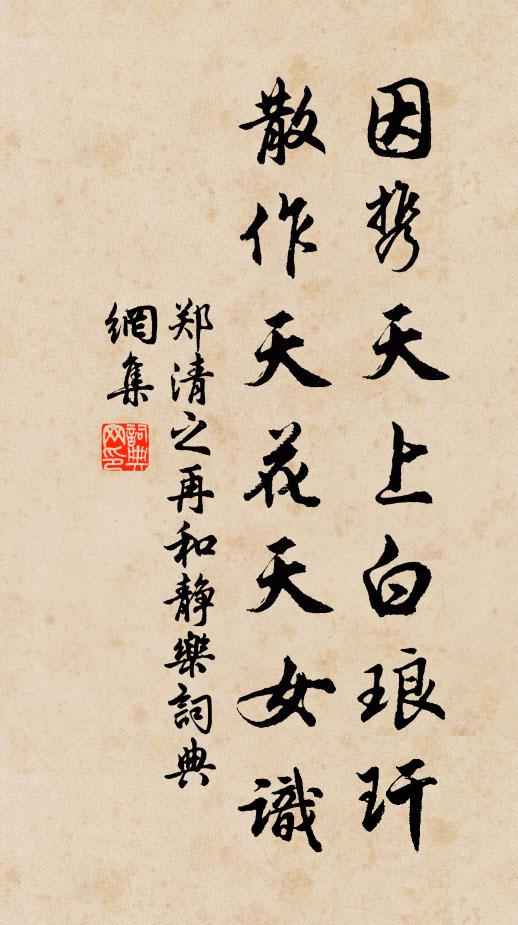 因携天上白琅玕
散作天花天女識
郑清之再和静樂詞典
網集
詞典網印